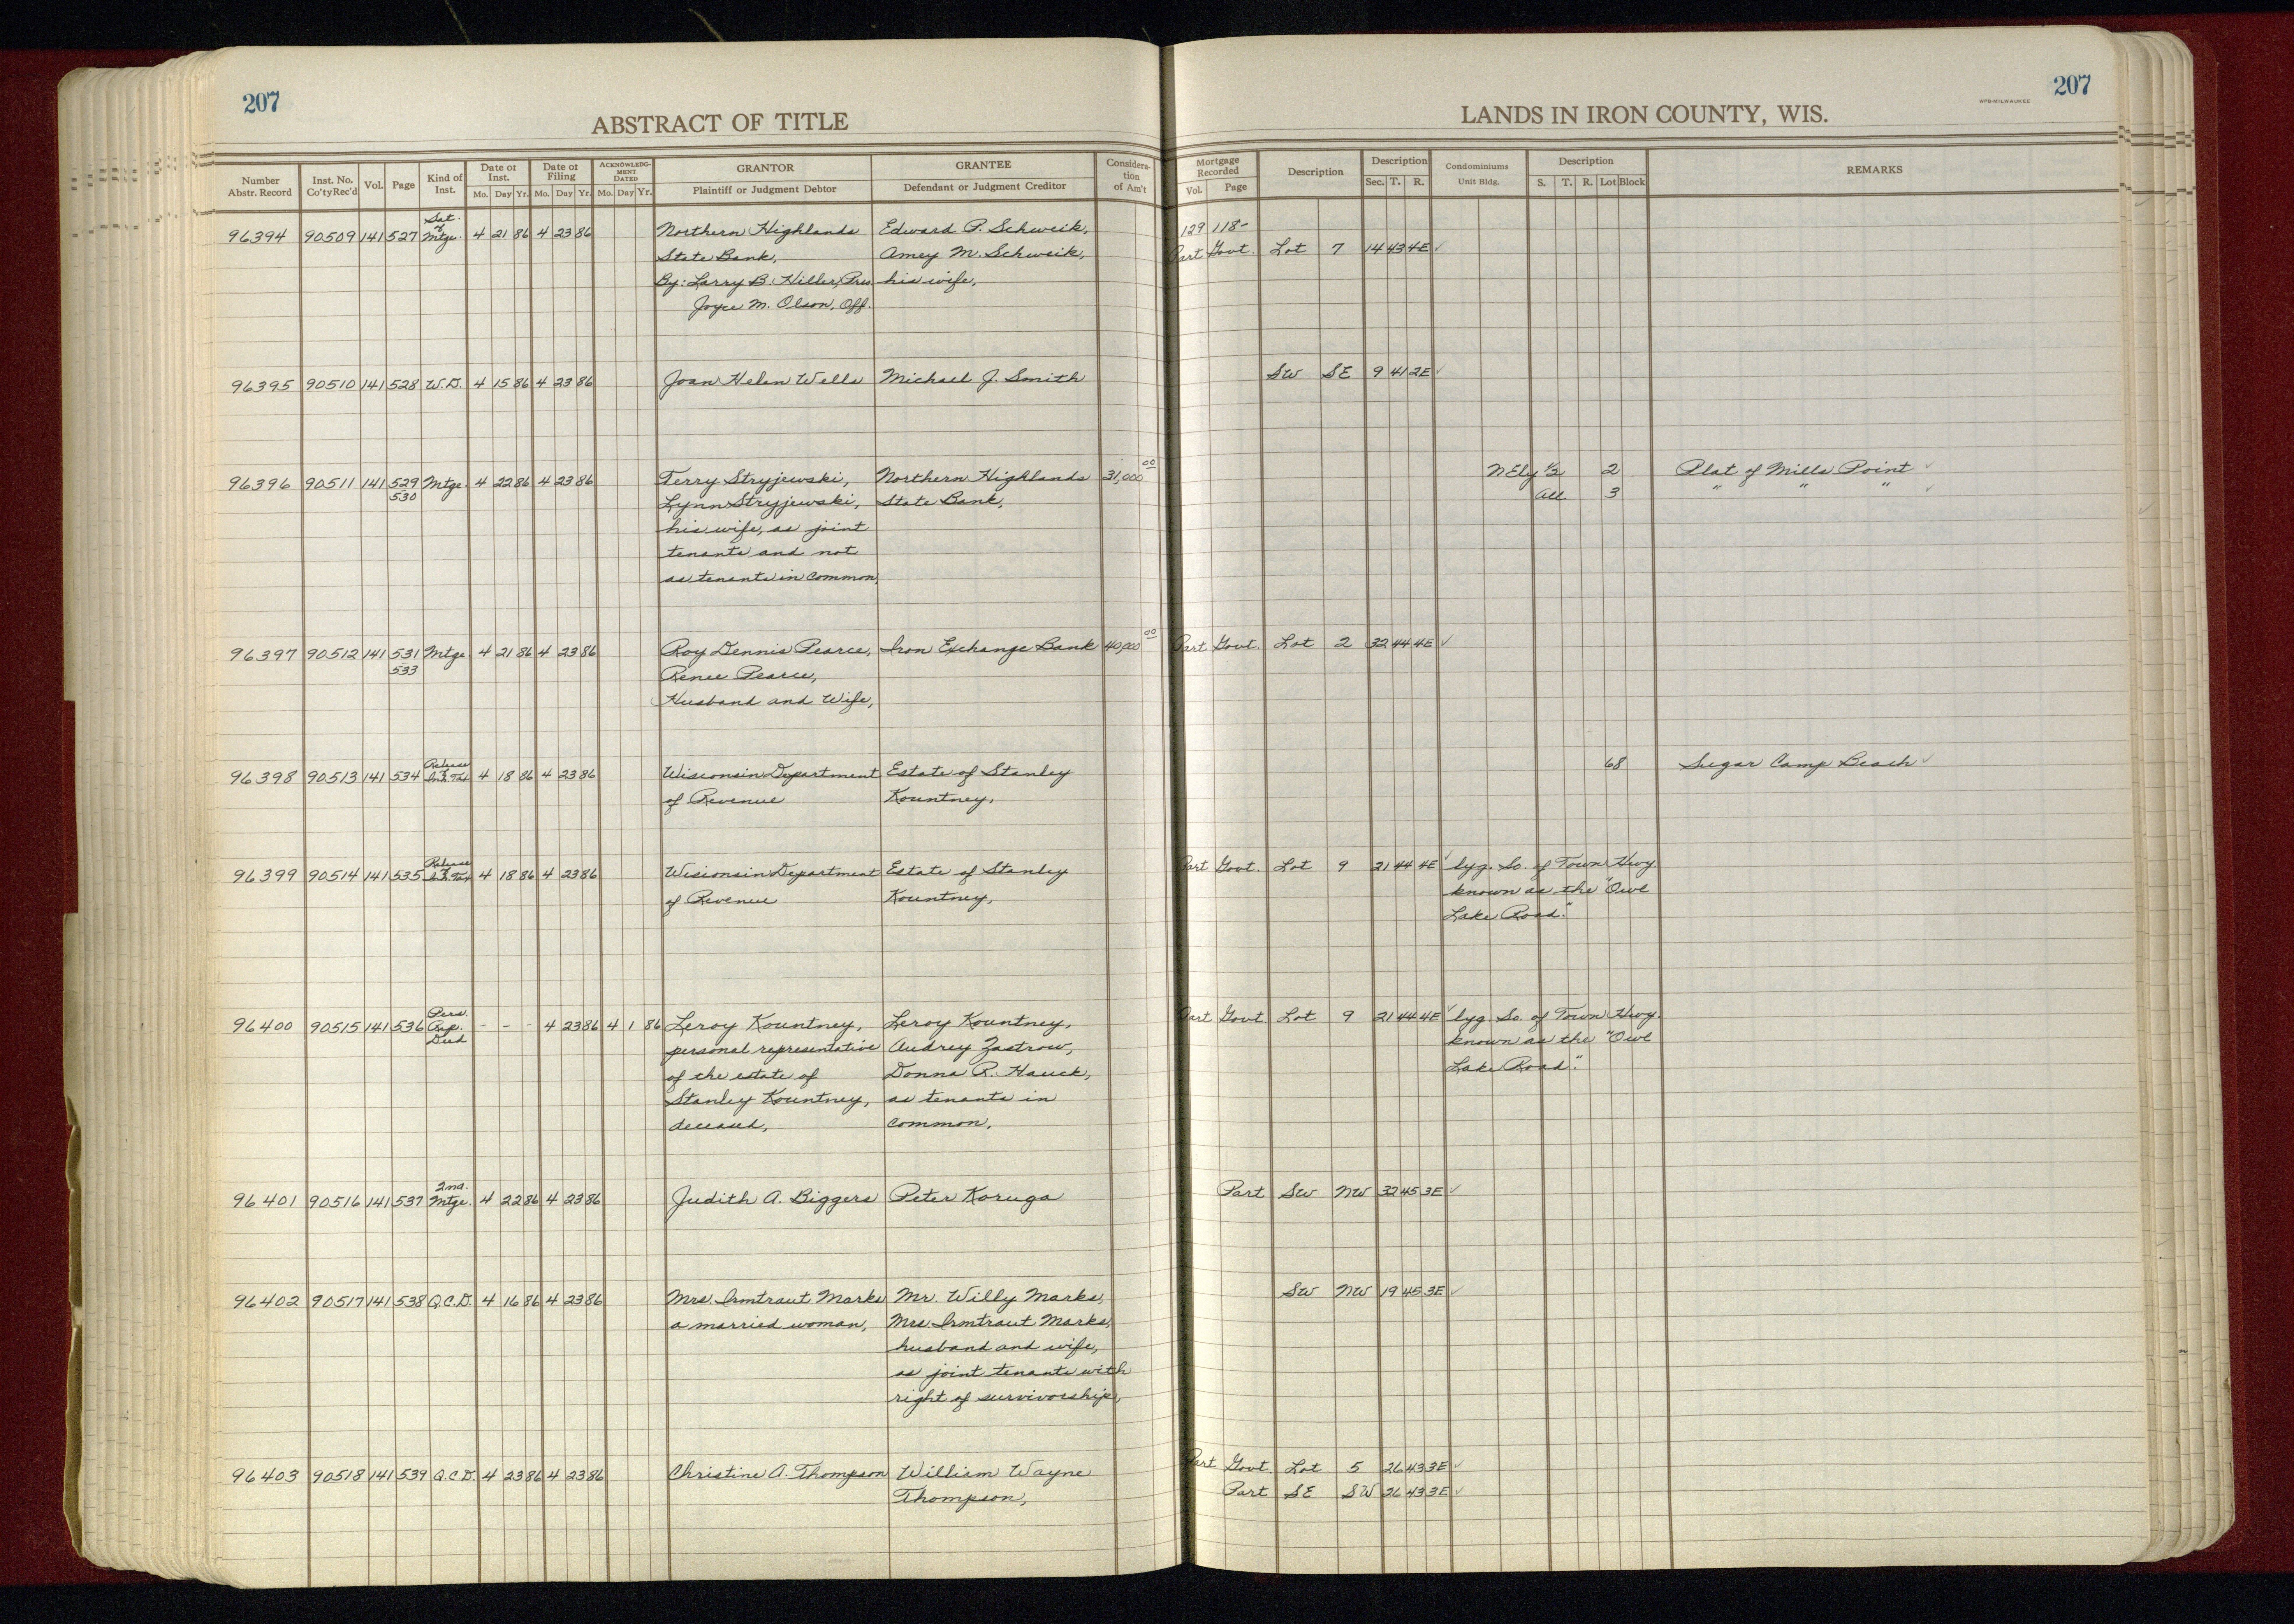 207
ABSTRACT OF TITLE
Number Abstr. Record | Inst. No. Co'ty Rec'd | Vol. | Page | Kind of Inst. | Date of Inst. Mo. Day Yr. | Date of Filing Mo. Day Yr. | ACKNOWLEDGMENT DATED Mo. Day Yr. | GRANTOR Plaintiff or Judgment Debtor | GRANTEE Defendant or Judgment Creditor | Consideration of Am't
96394 90509 141 527 Sat. of Mtge. 4 21 86 4 23 86 Northern Highlands Edward P. Schweik,
State Bank, Amey M. Schweik,
By: Larry B. Hiller, Pres. his wife,
Joyce M. Olson, Off.
96395 90510 141 528 W.D. 4 15 86 4 23 86 Joan Helen Wells Michael J. Smith
96396 90511 141 529 530 Mtge. 4 22 86 4 23 86 Terry Stryjewski, Northern Highlands 31,000 00
Lynn Stryjewski, State Bank,
his wife, as joint
tenants and not
as tenants in common,
96397 90512 141 531 - 533 Mtge. 4 21 86 4 23 86 Roy Dennis Pearce, Iron Exchange Bank 40,000 00
Renee Pearce,
Husband and Wife,
96398 90513 141 534 Release of Inh. Tax 4 18 86 4 23 86 Wisconsin Department Estate of Stanley
of Revenue Kountney,
96399 90514 141 535 Release of Inh. Tax 4 18 86 4 23 86 Wisconsin Department Estate of Stanley
of Revenue Kountney,
96400 90515 141 536 Pers. Rep. Deed - - - 4 23 86 4 1 86 Leroy Kountney, Leroy Kountney,
personal representative Audrey Zastrow,
of the estate of Donna R. Hauck,
Stanley Kountney, as tenants in
deceased, common,
96401 90516 141 537 2nd. Mtge. 4 22 86 4 23 86 Judith A. Biggers Peter Koruga
96402 90517 141 538 Q.C.D. 4 16 86 4 23 86 Mrs. Irmtraut Marks Mr. Willy Marks,
a married woman, Mrs. Irmtraut Marks,
husband and wife,
as joint tenants with
right of survivorship,
96403 90518 141 539 Q.C.D. 4 23 86 4 23 86 Christine A. Thompson William Wayne
Thompson,
207
WPB-MILWAUKEE
LANDS IN IRON COUNTY, WIS.
Mortgage Recorded Vol. Page | Description | Description Sec. T. R. | Condominiums Unit Bldg. | Description S. T. R. Lot Block | REMARKS
129 118-
Part Govt. Lot 7 14 43 4E ✓
SW SE 9 41 2E ✓
NEly ½ 2 Plat of Mills Point ✓
All 3 " " " ✓
Part Govt. Lot 2 32 44 4E ✓
68 Sugar Camp Beach ✓
Part Govt. Lot 9 21 44 4E ✓ lyg. So. of Town Hwy.
known as the "Owl
Lake Road."
Part Govt. Lot 9 21 44 4E ✓ lyg. So. of Town Hwy.
known as the "Owl
Lake Road."
Part SW NW 32 45 3E ✓
SW NW 19 45 3E ✓
Part Govt. Lot 5 26 43 3E ✓
Part SE SW 26 43 3E ✓